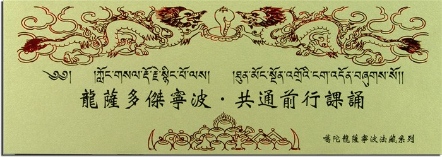 ༄༅། །ཀློང་གསལ་རྡོ་རྗེ་སྙིང་པོ་ལས། །ཐུན་མོང་སྔོན་འགྲོའི་ངག་འདོན་བཞུགས་སོ།།
龍薩多傑寧波・共通前行課誦
噶陀龍薩寧波法藏系列